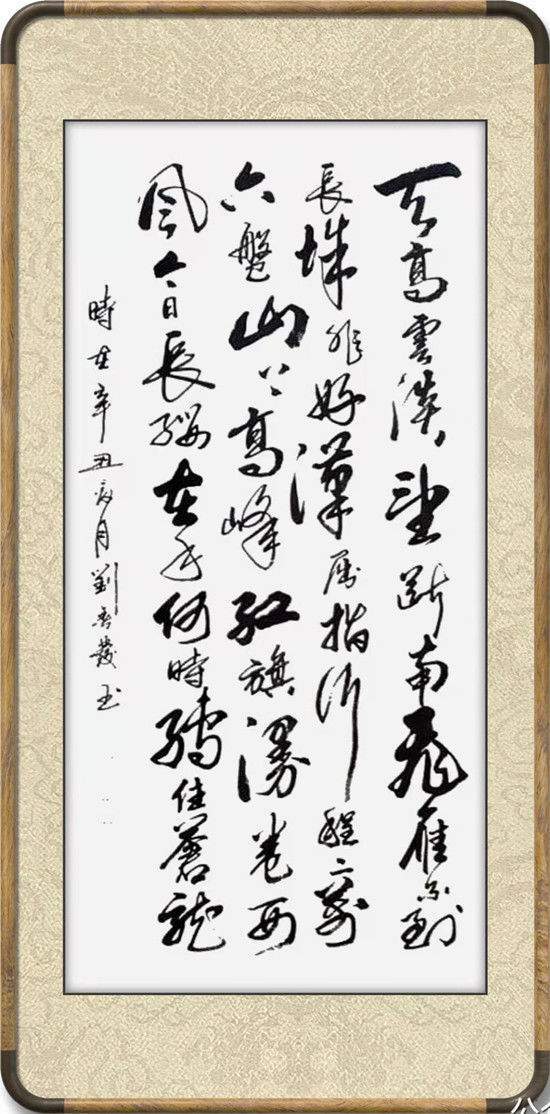 天高雲淡望断南飛雁不到
長城非好漢屈指行程二萬
六盤山上高峰紅旗漫卷西
風今日長纓在手何時縛住蒼龍
時在辛丑月劉發